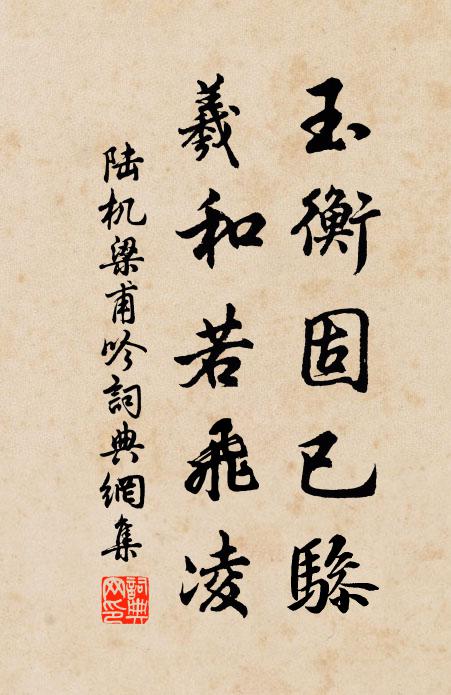 玉衡固已驂
羲和若飛凌
陆机梁甫吟詞典網集
詞典